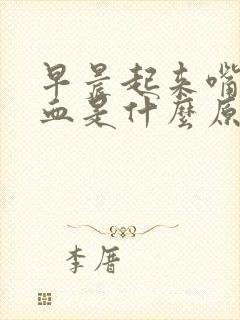 早晨起来嘴
血是什麼原
李厝